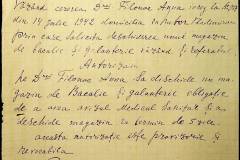 Văzând cererea Dnei Filonov Ana
din 14 iulie 1942 domiciliată
prin care solicită deschiderea unui magazin
de bacalie și galanterie văzând și referatul
Autorizăm
pe Dna Filonov Ana să deschide un ma-
gazin de Bacalie și galanterie obligație
de a avea avizul Medicul Sanitar și a
deschide magazin în termen de 5 zile.
aceasta autorizație este provizorie și
revocabilă